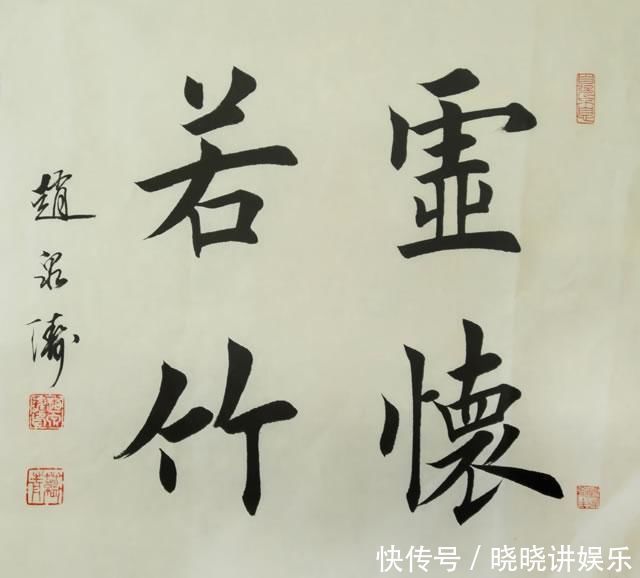 虛懷
若竹
趙 濤
快传号 / 晓晓讲娱乐